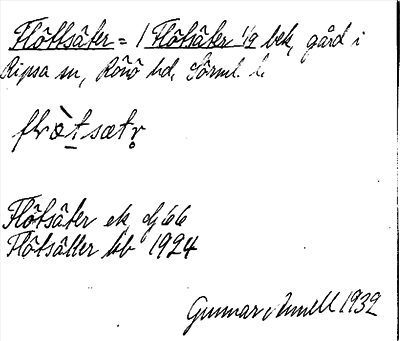 Flöttsäter = 1 Flötsäter 1/9 bek, gård i
Ripsa sn, Rönö hd, Sörml. l.
flrœ̀tsætr̥
Flötsäter ek dj 66
Flötsätter bb 1924
Gunnar Amell 1932